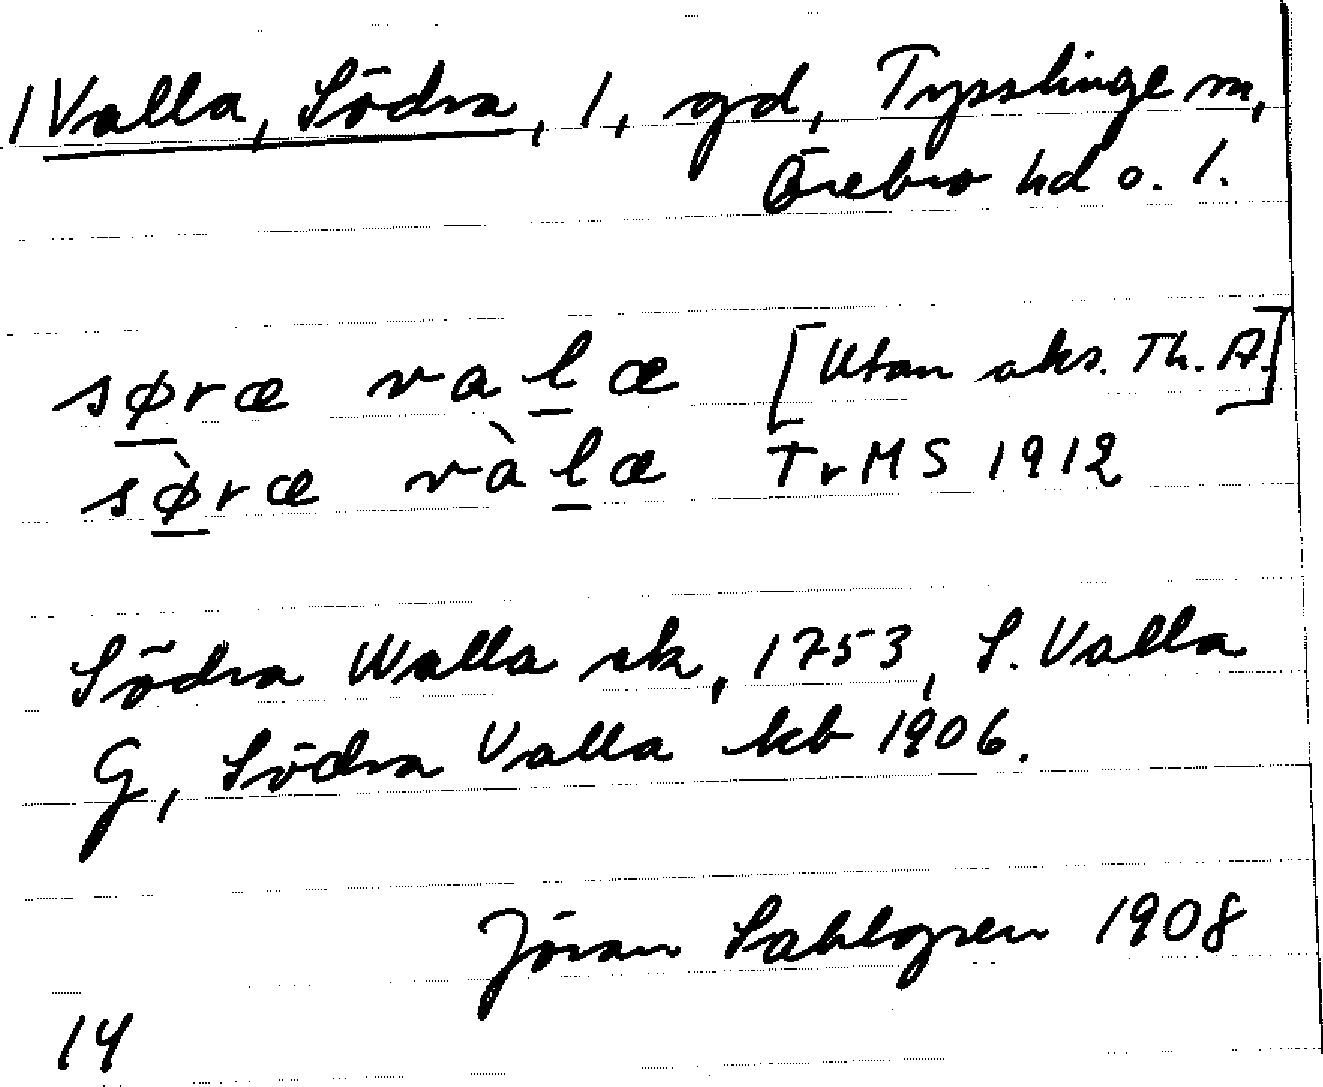 1 Valla, Södra, 1, gd, Tysslinge sn,
Örebro hd o. l.
søræ valæ [Utan aks. Th. A.]
sø̀ræ vàlæ TrMS 1912
Södra Walla sk, 1753, S. Valla
G, Södra Valla kb 1906.
Jöran Sahlgren 1908
14